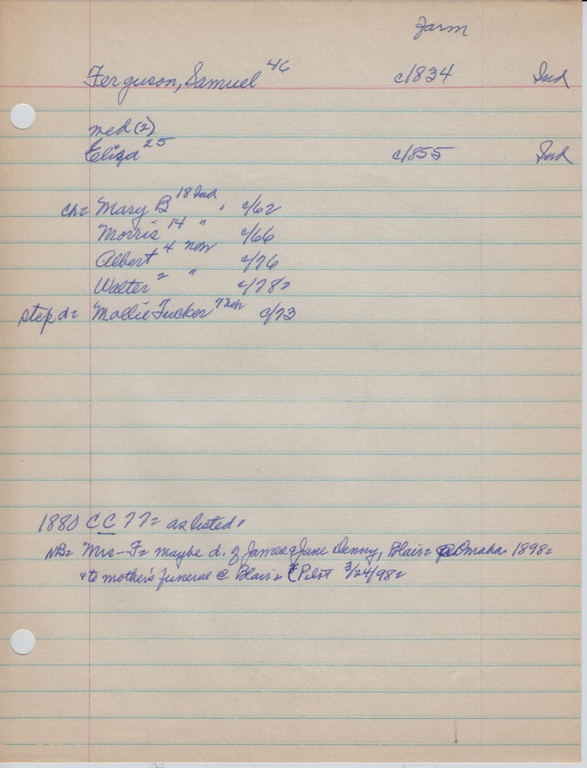 Farm
Ferguson, Samuel 46 c/834 Ind
med (2)
Eliza 25 c/855 Ind
ch= Mary B 18 Ind " c/62
Morris 14 " c/66
Albert 4 Neb c/76
Walter 2 " c/78=
step d= Mollie Tucker 7 Neb c/73
1880 CC 77= as listed.
NB= Mrs-F= maybe d. of James & Jane Denny, Blair= @ Omaha 1898=
to mother's funeral @ Blair= Pilot 3/24/98=